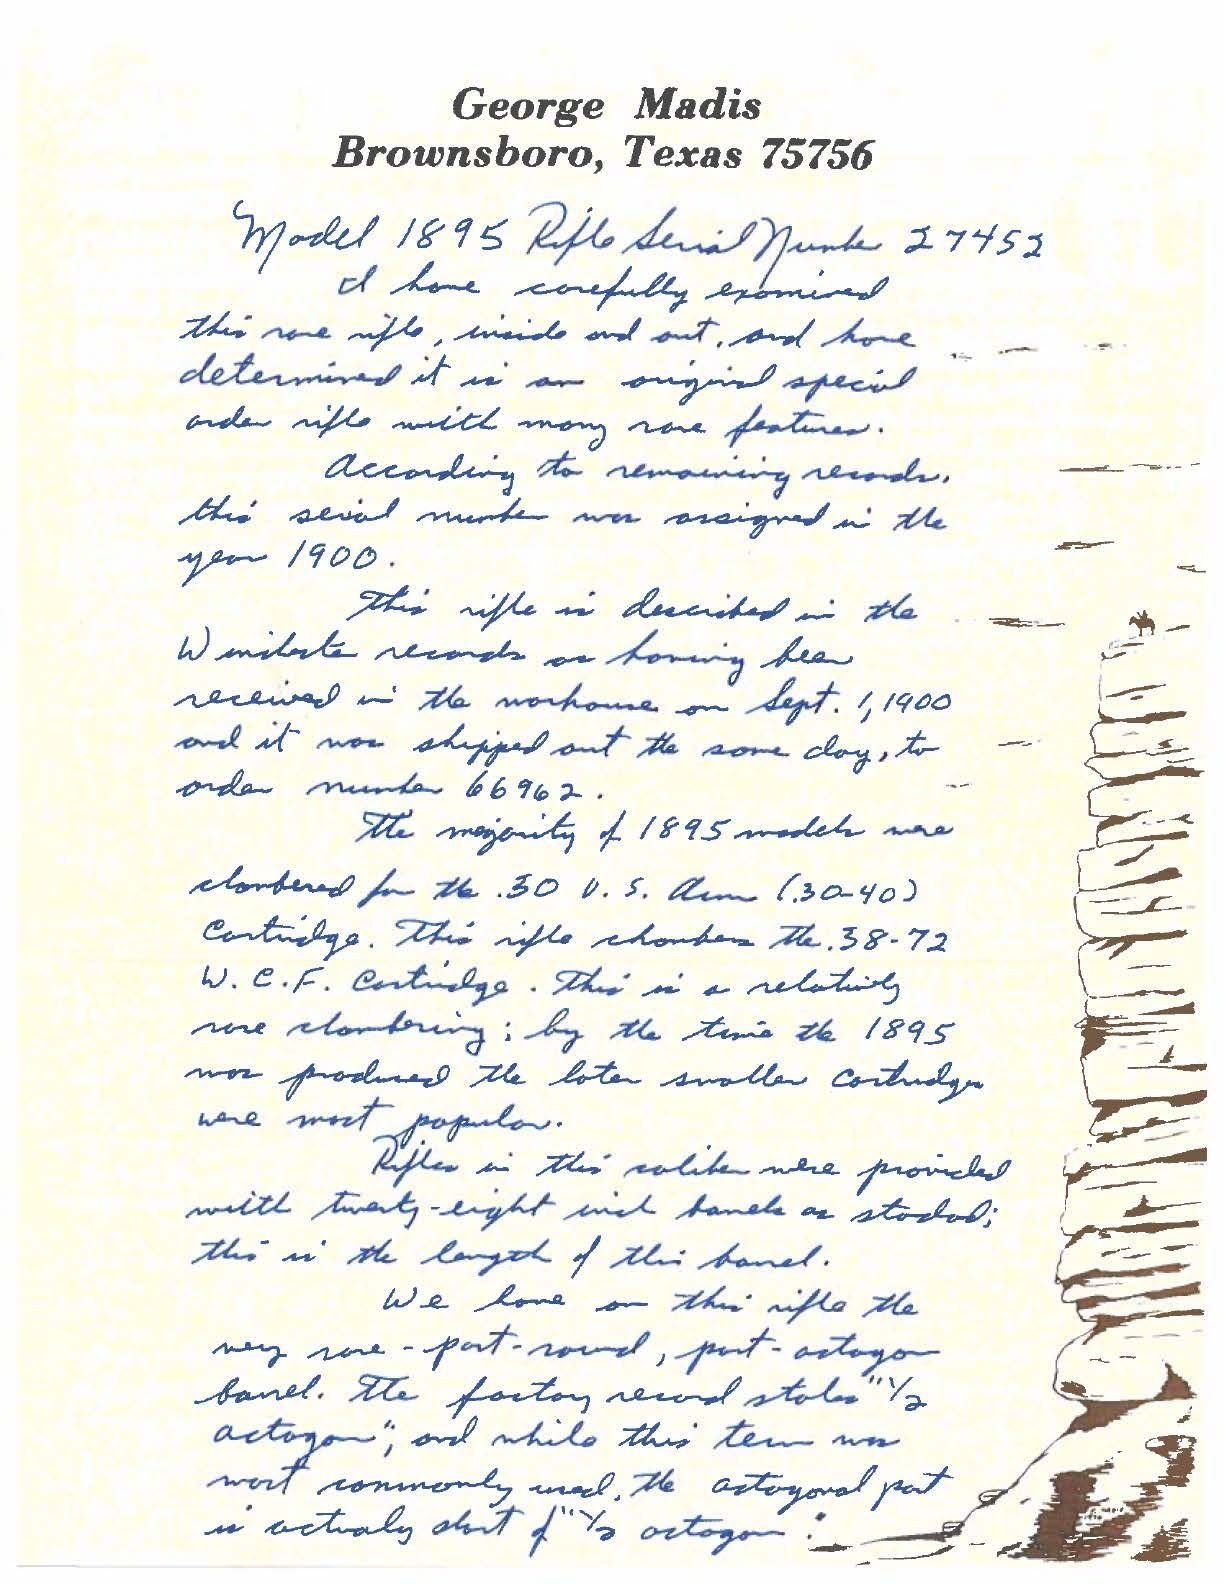 George Madis
Brownsboro, Texas 75756
Model 1895 Rifle Serial Number 27452
I have carefully examined
this rare rifle, inside and out, and have
determined it is an original special
order rifle with many rare features.
According to remaining records,
this serial number was assigned in the
year 1900.
This rifle is described in the
Winchester records as having been
received in the warehouse on Sept. 1, 1900
and it was shipped out the same day, to
order number 66962.
The majority of 1895 models were
chambered for the .30 U.S. Army (.30-40)
Cartridge. This rifle chambers the .38-72
W.C.F. Cartridge. This is a relatively
rare chambering; by the time the 1895
was produced the later smaller cartridges
were most popular.
Rifles in this caliber were provided
with twenty-eight inch barrels as standard;
this is the length of this barrel.
We have on this rifle the
very rare - part-round, part-octagon
barrel. The factory record states "1/2
octagon", and while this term was
most commonly used, the octagonal part
is actualy short of "1/2 octagon".